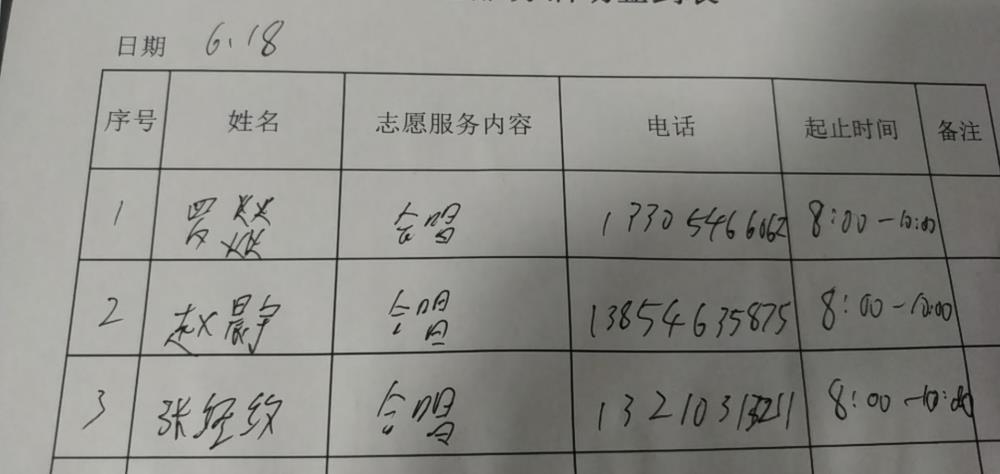 日期 6.18
序号 姓名 志愿服务内容 电话 起止时间 备注
1 罗燚 合唱 13305466062 8:00-10:00
2 赵晨宇 合唱 13854635875 8:00-10:00
3 张经纹 合唱 8:00-10:00